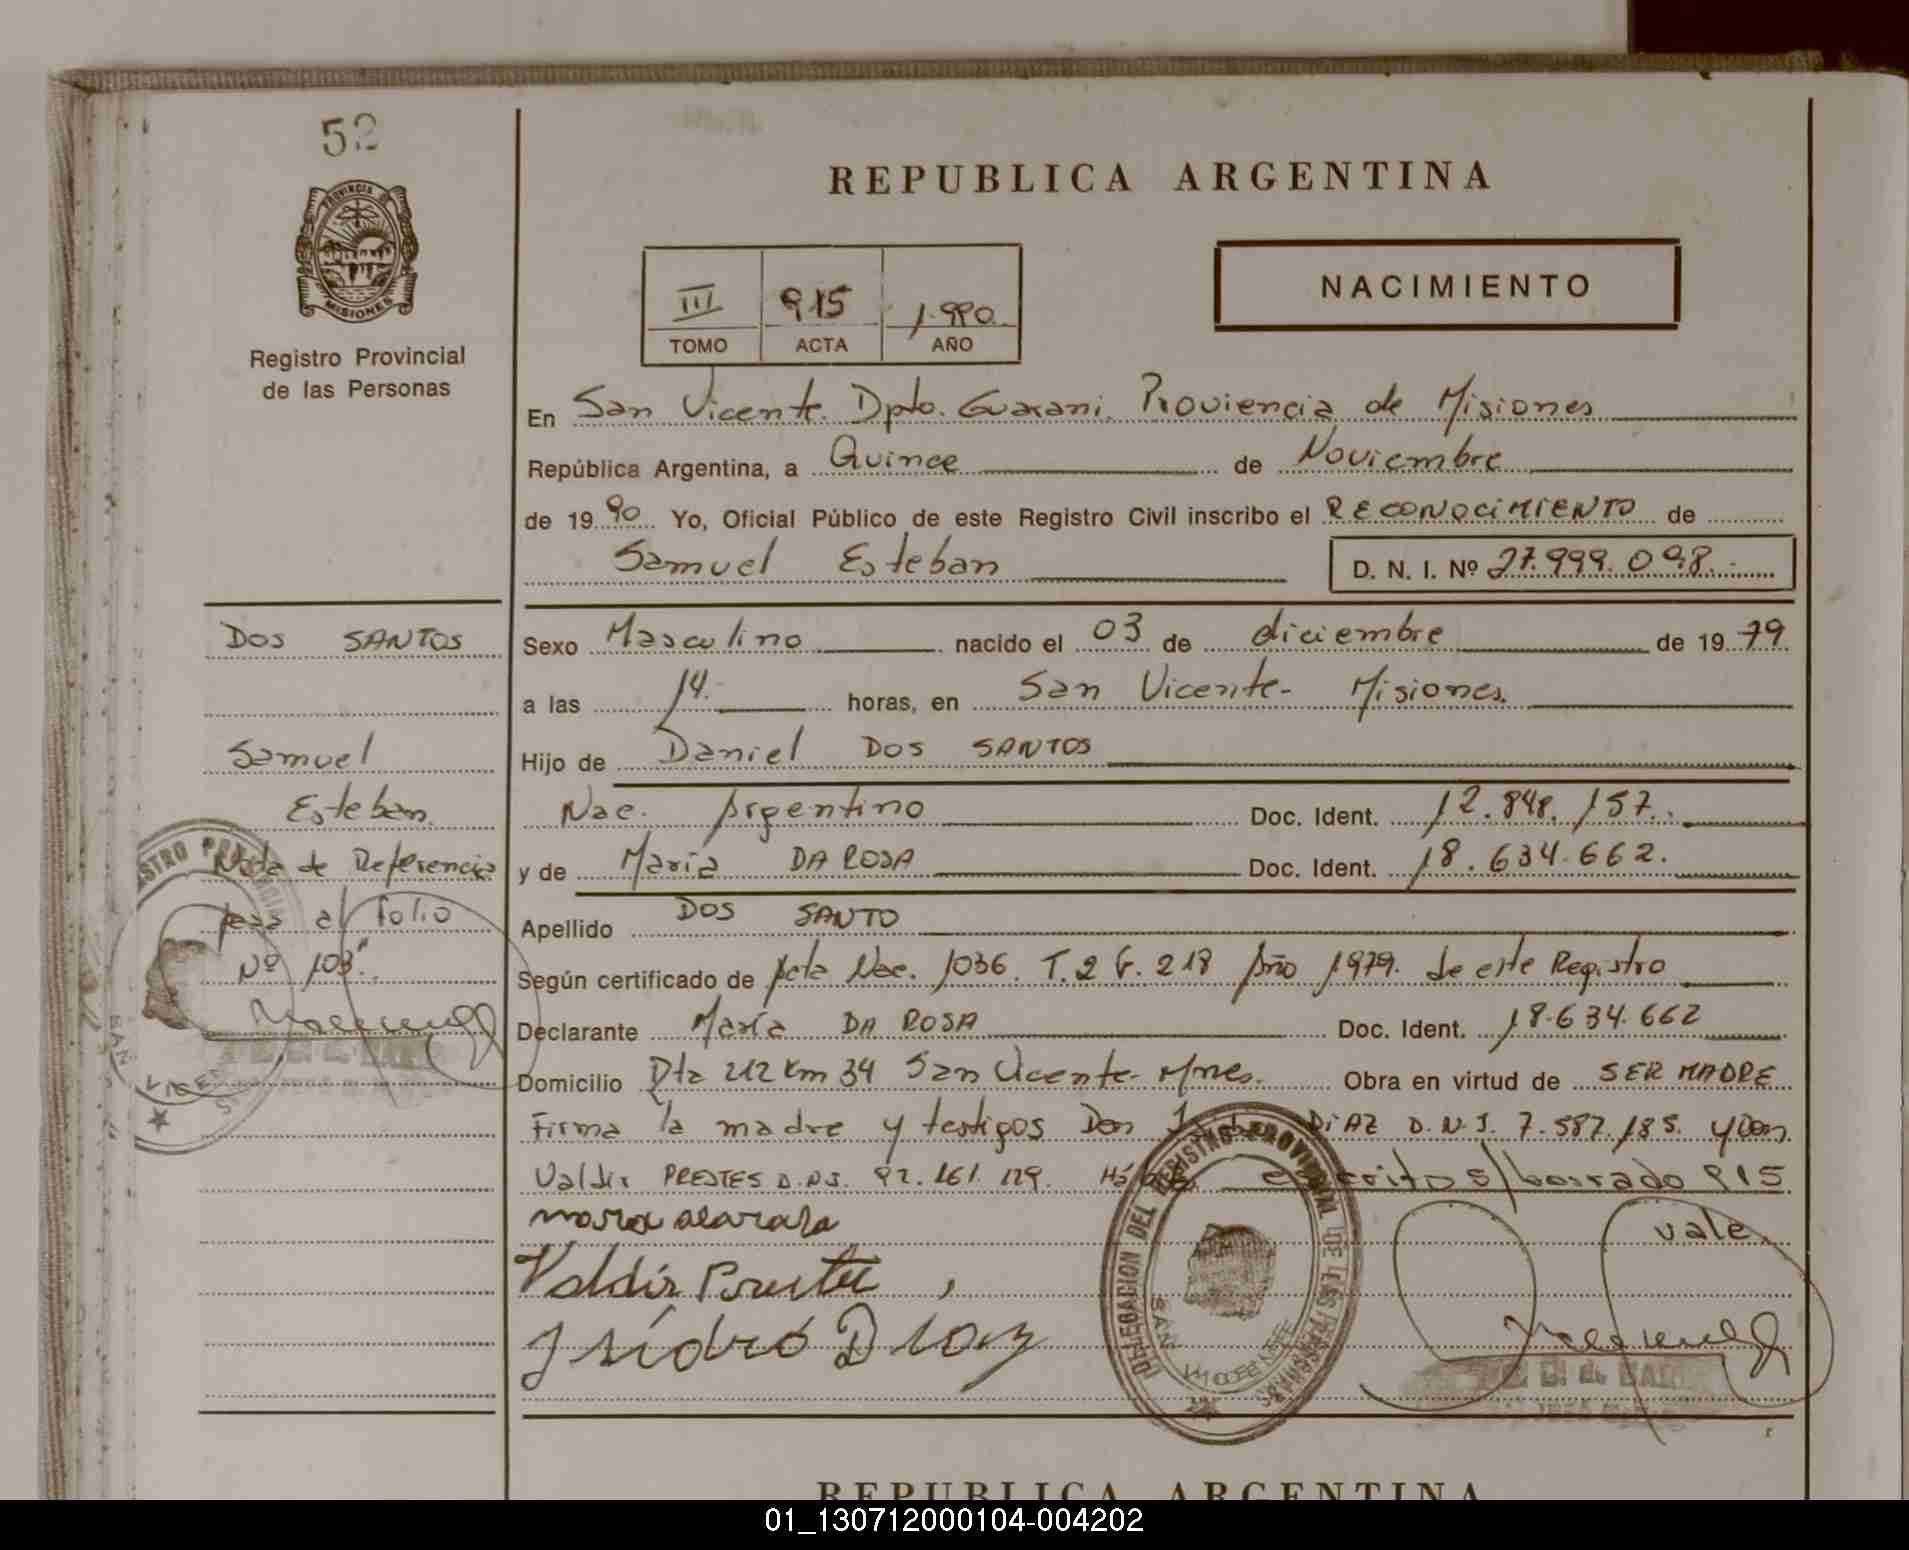 52
PROVINCIA DE
MISIONES
Registro Provincial
de las Personas
REPUBLICA ARGENTINA
III 915 1.990
TOMO ACTA AÑO
NACIMIENTO
En San Vicente. Dpto. Guarani. Proviencia de Misiones
República Argentina, a Quince de Noviembre
de 1990 Yo, Oficial Público de este Registro Civil inscribo el RECONOCIMIENTO de
Samuel Esteban D. N. I. Nº 27.999.098.
DOS SANTOS
Samuel
Esteban.
Nota de Referencia
pasa al Folio
Nº 103".
Sexo Masculino nacido el 03 de diciembre de 1979.
a las 14. horas, en San Vicente- Misiones.
Hijo de Daniel DOS SANTOS
Nac. Argentino Doc. Ident. 12.848.157.
y de María DA ROSA Doc. Ident. 18.634.662.
Apellido DOS SANTO
Según certificado de Acta Nac. 1036. T.2 F.218 Año 1979. de este Registro
Declarante María DA ROSA Doc. Ident. 18.634.662
Domicilio Rta 212 Km 34 San Vicente- Mnes. Obra en virtud de SER MADRE
Firma la madre y testigos Don DIAZ D.N.I. 7.587.185. y Don
Valdir PRESTES D.N.I. 92.161.129. s/borrado 915
vale
Valdir
Isidro Diaz
DELEGACION DEL REGISTRO PROVINCIAL DE LAS PERSONAS
SAN VICENTE
REPUBLICA ARGENTINA
01_130712000104-004202